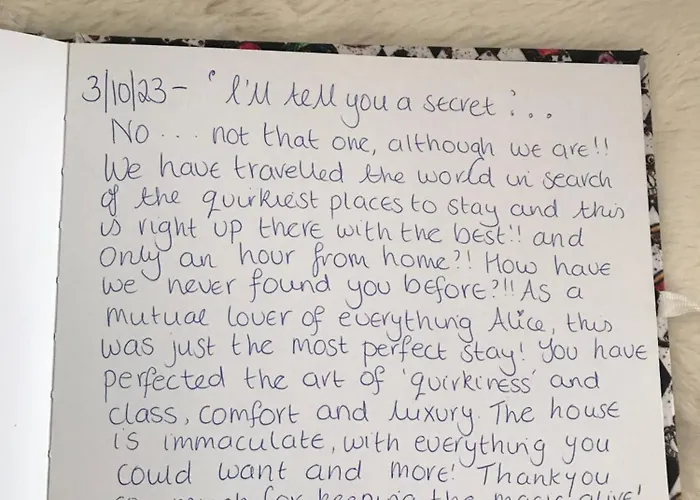 3/10/23 - 'I'll tell you a secret'...
No ... not that one, although we are!!
We have travelled the world in search
of the quirkiest places to stay and this
is right up there with the best!! and
only an hour from home?! How have
we never found you before?!! As a
mutual lover of everything Alice, this
was just the most perfect stay! You have
perfected the art of 'quirkiness' and
class, comfort and luxury. The house
is immaculate, with everything you
could want and more! Thankyou
so much for keeping the magic alive!